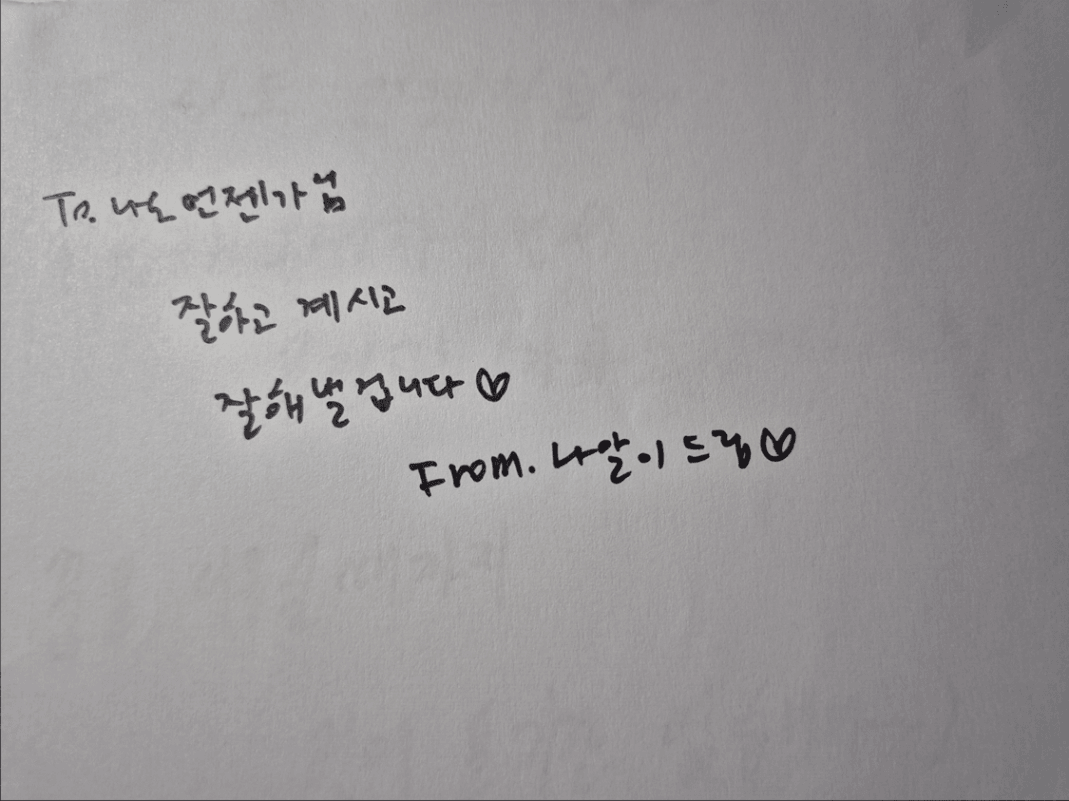 To. 나도 언젠가 님
잘하고 계시고
잘해낼겁니다♡
From. 나알이 드림♡